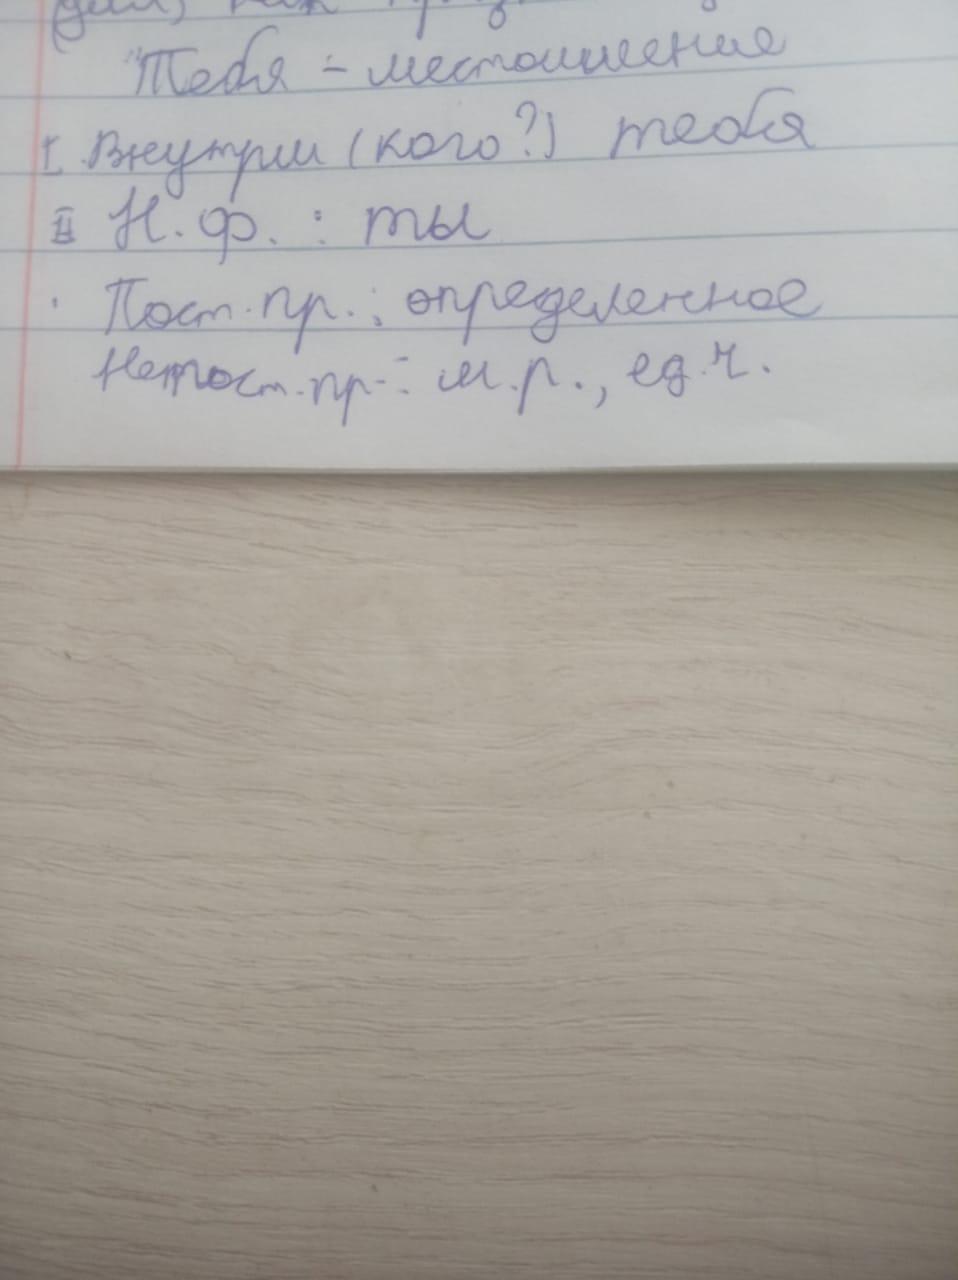 как
"Тебя - местоимение
I. Внутри (кого?) тебя
II Н. ф. : ты
Пост. пр. : определенное
Непост. пр- : м. р., ед. ч.